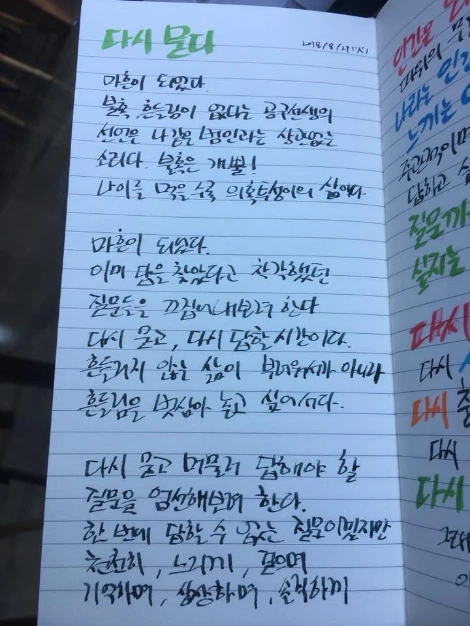 다시 묻다
마흔이 되었다.
불혹, 흔들림이 없다는 공구선생의
선언은 나같은 범인과는 상관없는
소리다. 불혹은 개뿔!
나이를 먹을수록 의혹투성이의 삶이다.
마흔이 되었다.
이미 답을 찾았다고 착각했던
질문들을 끄집어내보려 한다
다시 묻고, 다시 답할 시간이다.
흔들리지 않는 삶이 부러워서가 아니라
흔들림을 벗삼아 놀고 싶어서다.
다시 묻고 머물러 답해야 할
질문을 엄선해보려 한다.
한 번에 답할 수 없는 질문이겠지만
천천히, 느리게, 물으며
기억하며, 상상하며, 솔직하게
인간은
나라는
느끼는
답하고
질문
다시
다시
다시
다시
다시